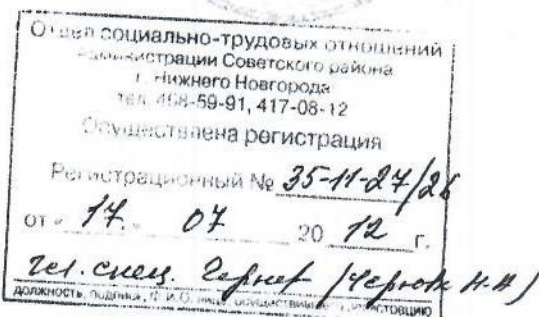 Отдел социально-трудовых отношений
администрации Советского района
г. Нижнего Новгорода
тел. 468-59-91, 417-08-12
Осуществлена регистрация
Регистрационный № 35-11-27/26
от " 17 " 07 20 12 г.
гл. спец.
должность, подпись, Ф.И.О. лица, осуществившего регистрацию